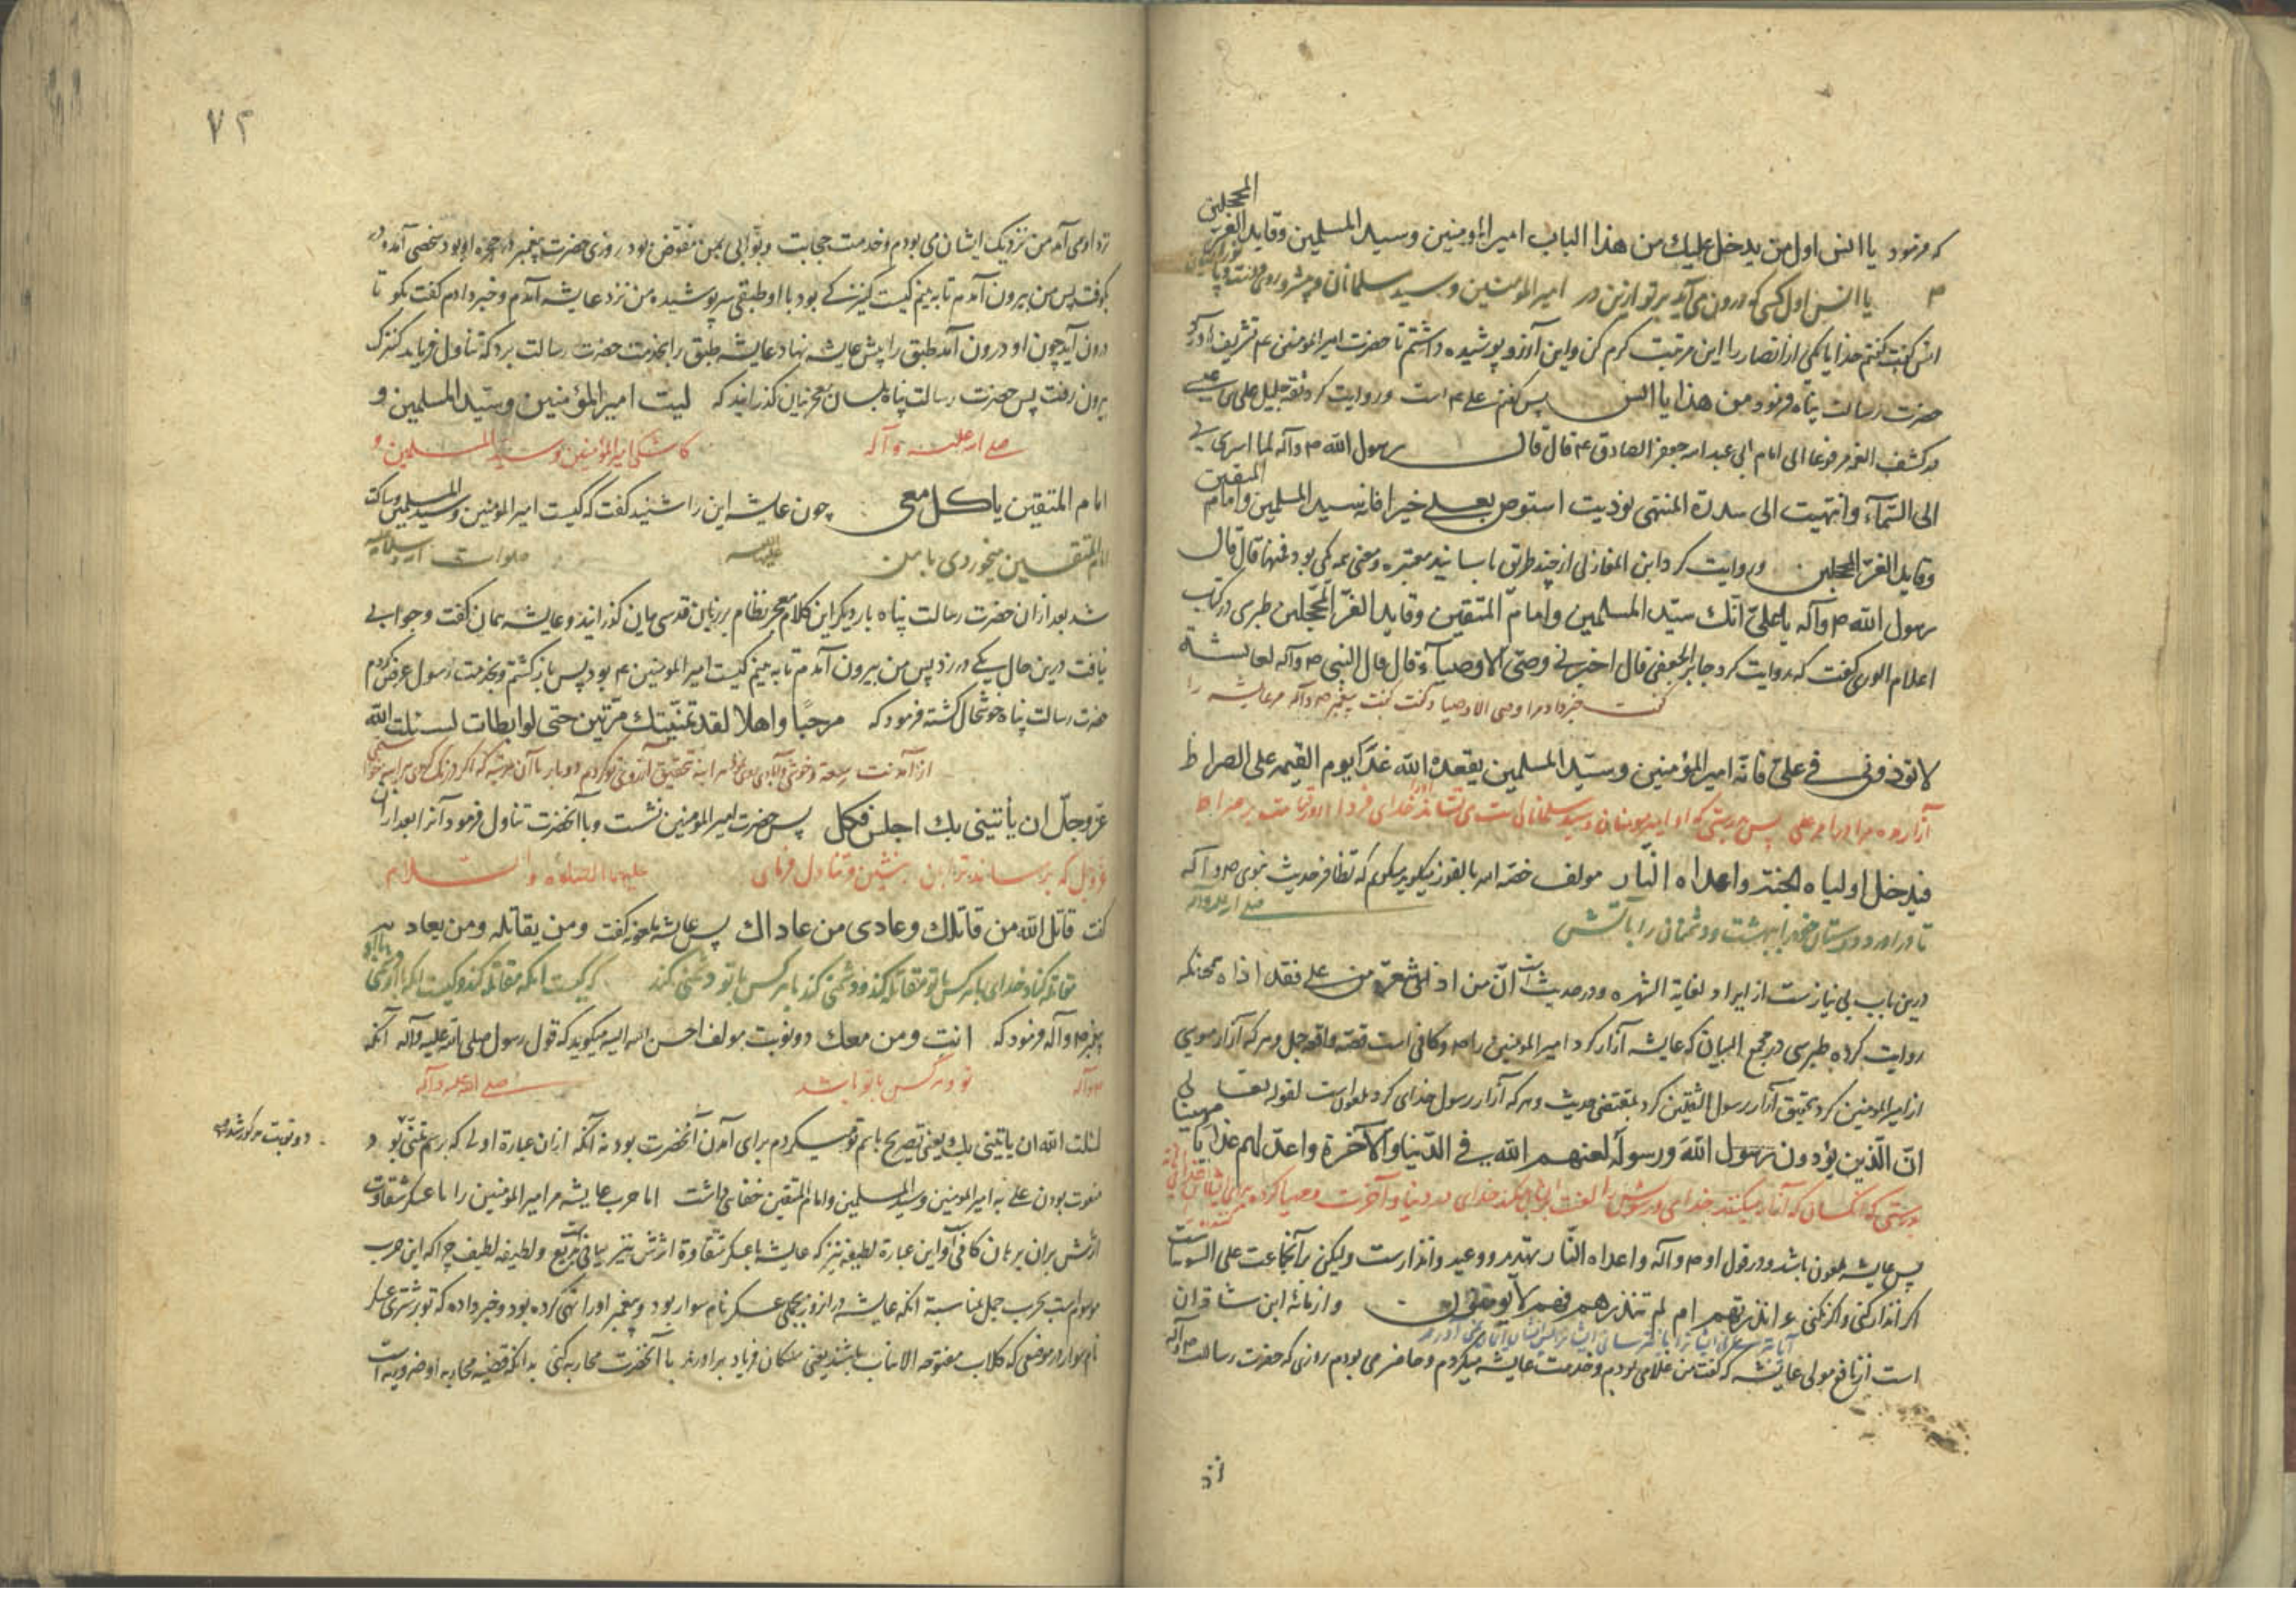 المحجلین
که فرمود یا انس اول من یدخل علیك من هذا الباب امیر المؤمنین وسید المسلمین وقاید الغر
یا انس اول کسی که درون می آید بر تو ازین در امیر المومنین و سید مسلمانان و پیشرو
انس گفت گفتم خدایا یکی از انصار را این مرتبت کرم کن و این آرزو پوشیده داشتم تا حضرت امیر المومنین ع م تشریف
حضرت رسالت پناه فرمود من هذا یا انس پس گفتم علی ع م است و روایت کرد ثقه جلیل علی بن عیسی
در کشف الغمه مرفوعا الی امام ابی عبد الله جعفر الصادق ع م قال قال رسول الله ص م وآله لما اسری بی
المتقین
الی السماء وانتهیت الی سدرة المنتهی نودیت استوص بعلی خیرا فانه سید المسلمین وامام
وقاید الغر المحجلین و روایت کرد ابن المغازلی از چند طریق با سانید معتبره و معنی همه یکی بود فمنها قال قال
رسول الله ص م وآله یا علی انك سید المسلمین وامام المتقین وقاید الغر المحجلین طبرسی در کتاب
اعلام الوری گفت که روایت کرد جابر الجعفی قال اخبرنی وصی الاوصیاء قال قال النبی ص م وآله لعایشة
گفت خبر داد مرا وصی الاوصیا و گفت گفت پیغمبر ص م وآله مر عایشه را
لا توذونی فی علی فانه امیر المؤمنین وسید المسلمین یقعده الله غدا یوم القیمه علی الصراط
آزار مده مرا در علی پس بدرستی که او امیر مومنان و سید مسلمانان است می نشاند او را خدای فردا روز قیامت بر صراط
فیدخل اولیاه الجنة واعداه النار مولف خصه الله بالفوز میگوید که تظافر حدیث نبوی ص م وآله
تا در آورد دوستان خود را ببهشت و دشمنان را بآتش
درین باب بی نیازست از ایراد لغایة الشهره و در حدیث است ان من اذی شعرة من علی فقد اذاه همچنانکه
روایت کرده طبرسی در مجمع البیان که عایشه آزار کرد امیر المومنین را ص م و کافی است قصه واقعه جمل و هر که آزار مویی
از امیر المومنین کرد بتحقیق آزار رسول الثقلین کرد بمقتضی حدیث و هر که آزار رسول خدای کرد ملعون است لقوله تعالی
ان الذین یؤذون رسول الله ورسوله لعنهم الله فی الدنیا والآخرة واعد لهم عذابا مهینا
بدرستی که آنکسان که آزار میکنند خدای و رسولش را لعنت خدای در دنیا و آخرت و مهیا کرده برای ایشان
پس عایشه ملعون باشد و در قول او ص م وآله واعداه النار تهدید و وعید و انذارست ولیکن بر آنجماعت علی السویه است
اگر انذار کنی و اگر نکنی ءانذرتهم ام لم تنذرهم فهم لا یؤمنون و از مائه ابن شاذان
است از نافع مولی عایشه که گفت من غلامی بودم و خدمت عایشه میکردم و حاضر می بودم روزی که حضرت رسالت ص م وآله
نزد
۷۲
نزد او می آمد من نزدیک ایشان می بودم و خدمت حجابت و بوابی بمن مفوض بود روزی حضرت پیغمبر در حجره او بود شخصی آمد و در
بکوفت پس من بیرون آمدم تا به بینم کیست کنیزکی بود با او طبقی سرپوشیده من نزد عایشه آمدم و خبر دادم گفت بگو تا
درون آید چون او درون آمد طبق را پیش عایشه نهاد عایشه طبق را بخدمت حضرت رسالت برد که تناول فرماید کنیزک
بیرون رفت پس حضرت رسالت پناه بلسان معجز بیان گذرانید که لیت امیر المؤمنین وسید المسلمین و
صلی الله علیه وآله کاشکی امیر المؤمنین وسید المسلمین و
امام المتقین یاکل معی چون عایشه این را شنید گفت که کیست امیر المومنین وسید المسلمین ساکت
امام المتقین میخوردی با من علیه اللعنه صلوات الله وسلامه علیه
شد بعد از ان حضرت رسالت پناه بار دیگر این کلام معجز نظام بر زبان قدسی بیان گذرانید و عایشه همان گفت و جوابی
نیافت درین حال یکی در زد پس من بیرون آمدم تا به بینم کیست امیر المومنین ع م بود پس باز گشتم و بخدمت رسول عرض کردم
حضرت رسالت پناه خوشحال گشته فرمود که مرحبا واهلا لقد تمنیتك مرتین حتی لو ابطات لسئلت الله
عز وجل ان یأتینی بك اجلس فکل پس حضرت امیر المومنین نشست و با آنحضرت تناول فرمود آنرا بعد از ان
عز وجل که برساند ترا بمن بنشین و تناول فرمای علیهما الصلوة والسلام
گفت قاتل الله من قاتلك وعادی من عاداك پس عایشه ملعونه گفت ومن یقاتله ومن یعادیه
مقاتله کناد خدای با هر کس با تو مقاتله کند و دشمنی کند با هر کس با تو دشمنی کند که کیست آنکه مقاتله کند و کیست آنکه با او دشمنی
پیغمبر ص م وآله فرمود که انت ومن معك دو نوبت مولف احسن الله الیه میگوید که قول رسول صلی الله علیه وآله آنکه
تو و هر کس با تو باشد صلی الله علیه وآله
لسئلت الله ان یاتینی بك یعنی تصریح باسم تو میکردم برای آمدن آنحضرت بود نه آنکه ازان عبارة اولی که برسم تمنی بود
دو نوبت مذکور شد
منعوت بودن علی به امیر المومنین وسید المسلمین وامام المتقین خفایی داشت اما حرب عایشه مر امیر المومنین را با عسکر شقاوت
اثرش بران برهان کافی است و این عبارة لطیفه نیز که عایشه با عسکر شقاوة اثرش نیز بیانی بدیع ولطیفه لطیف چرا که این حرب
موسوم است بحرب جمل بمناسبة آنکه عایشه دران روز بر جملی عسکر نام سوار بود و پیغمبر او را نهی کرده بود و خبر داده که تو بر شتری عسکر
نام سوار در موضعی که کلاب مفتوحه الانیاب باشند یعنی سگان فریاد برآورند با آنحضرت محاربه کنی بدانکه قضیه محاربه او ضروریه است